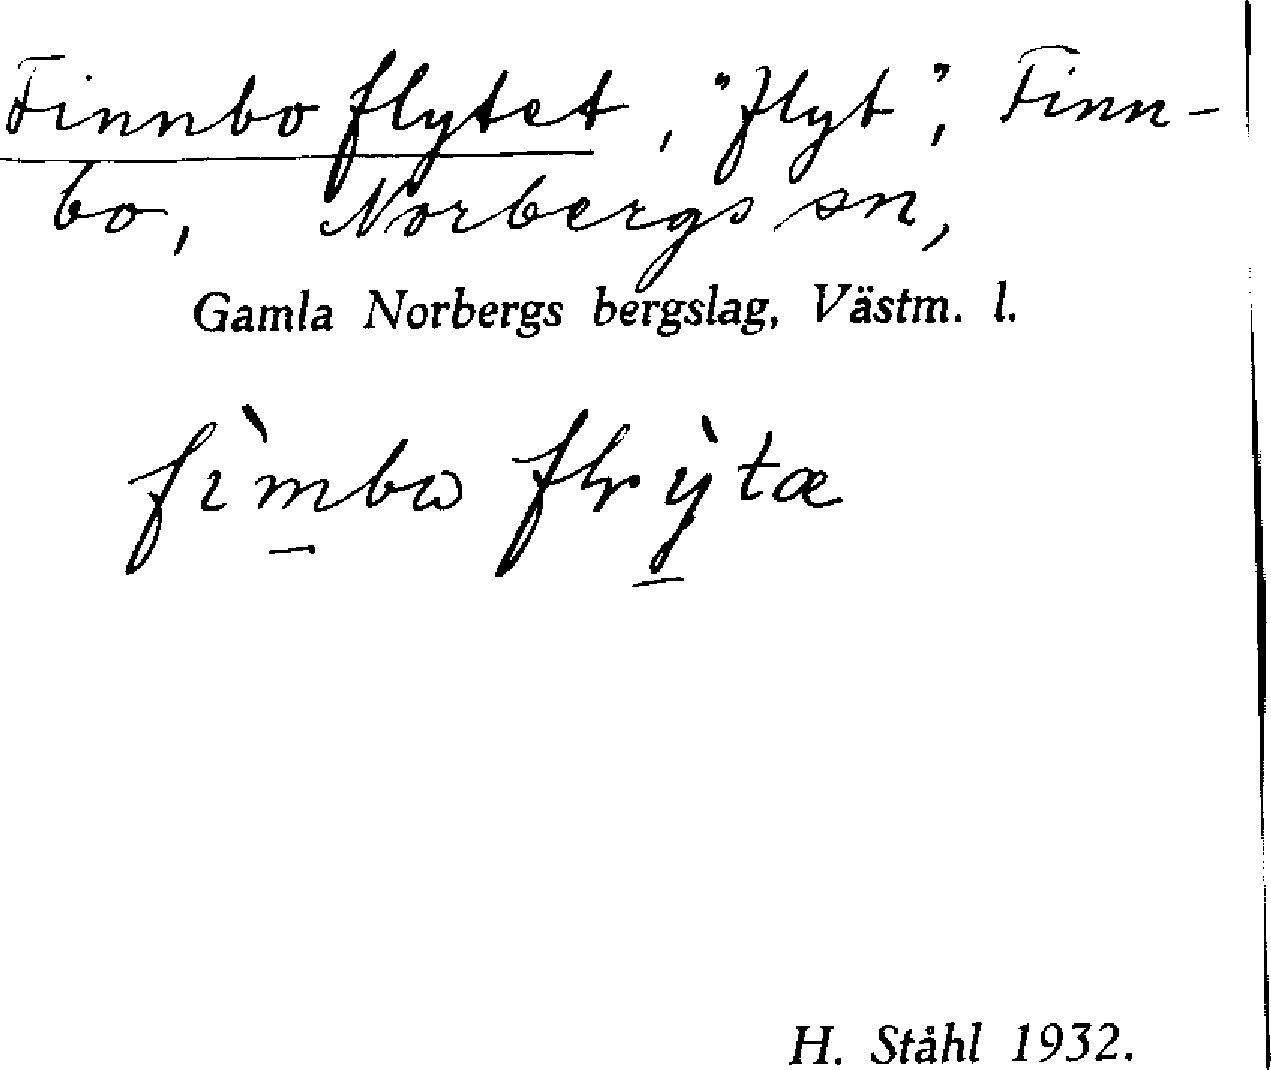 Finnbo flytet, "flyt", Finn-
bo, Norbergs sn,
Gamla Norbergs bergslag, Västm. l.
fìmbɷ flỳtæ
H. Ståhl 1932.